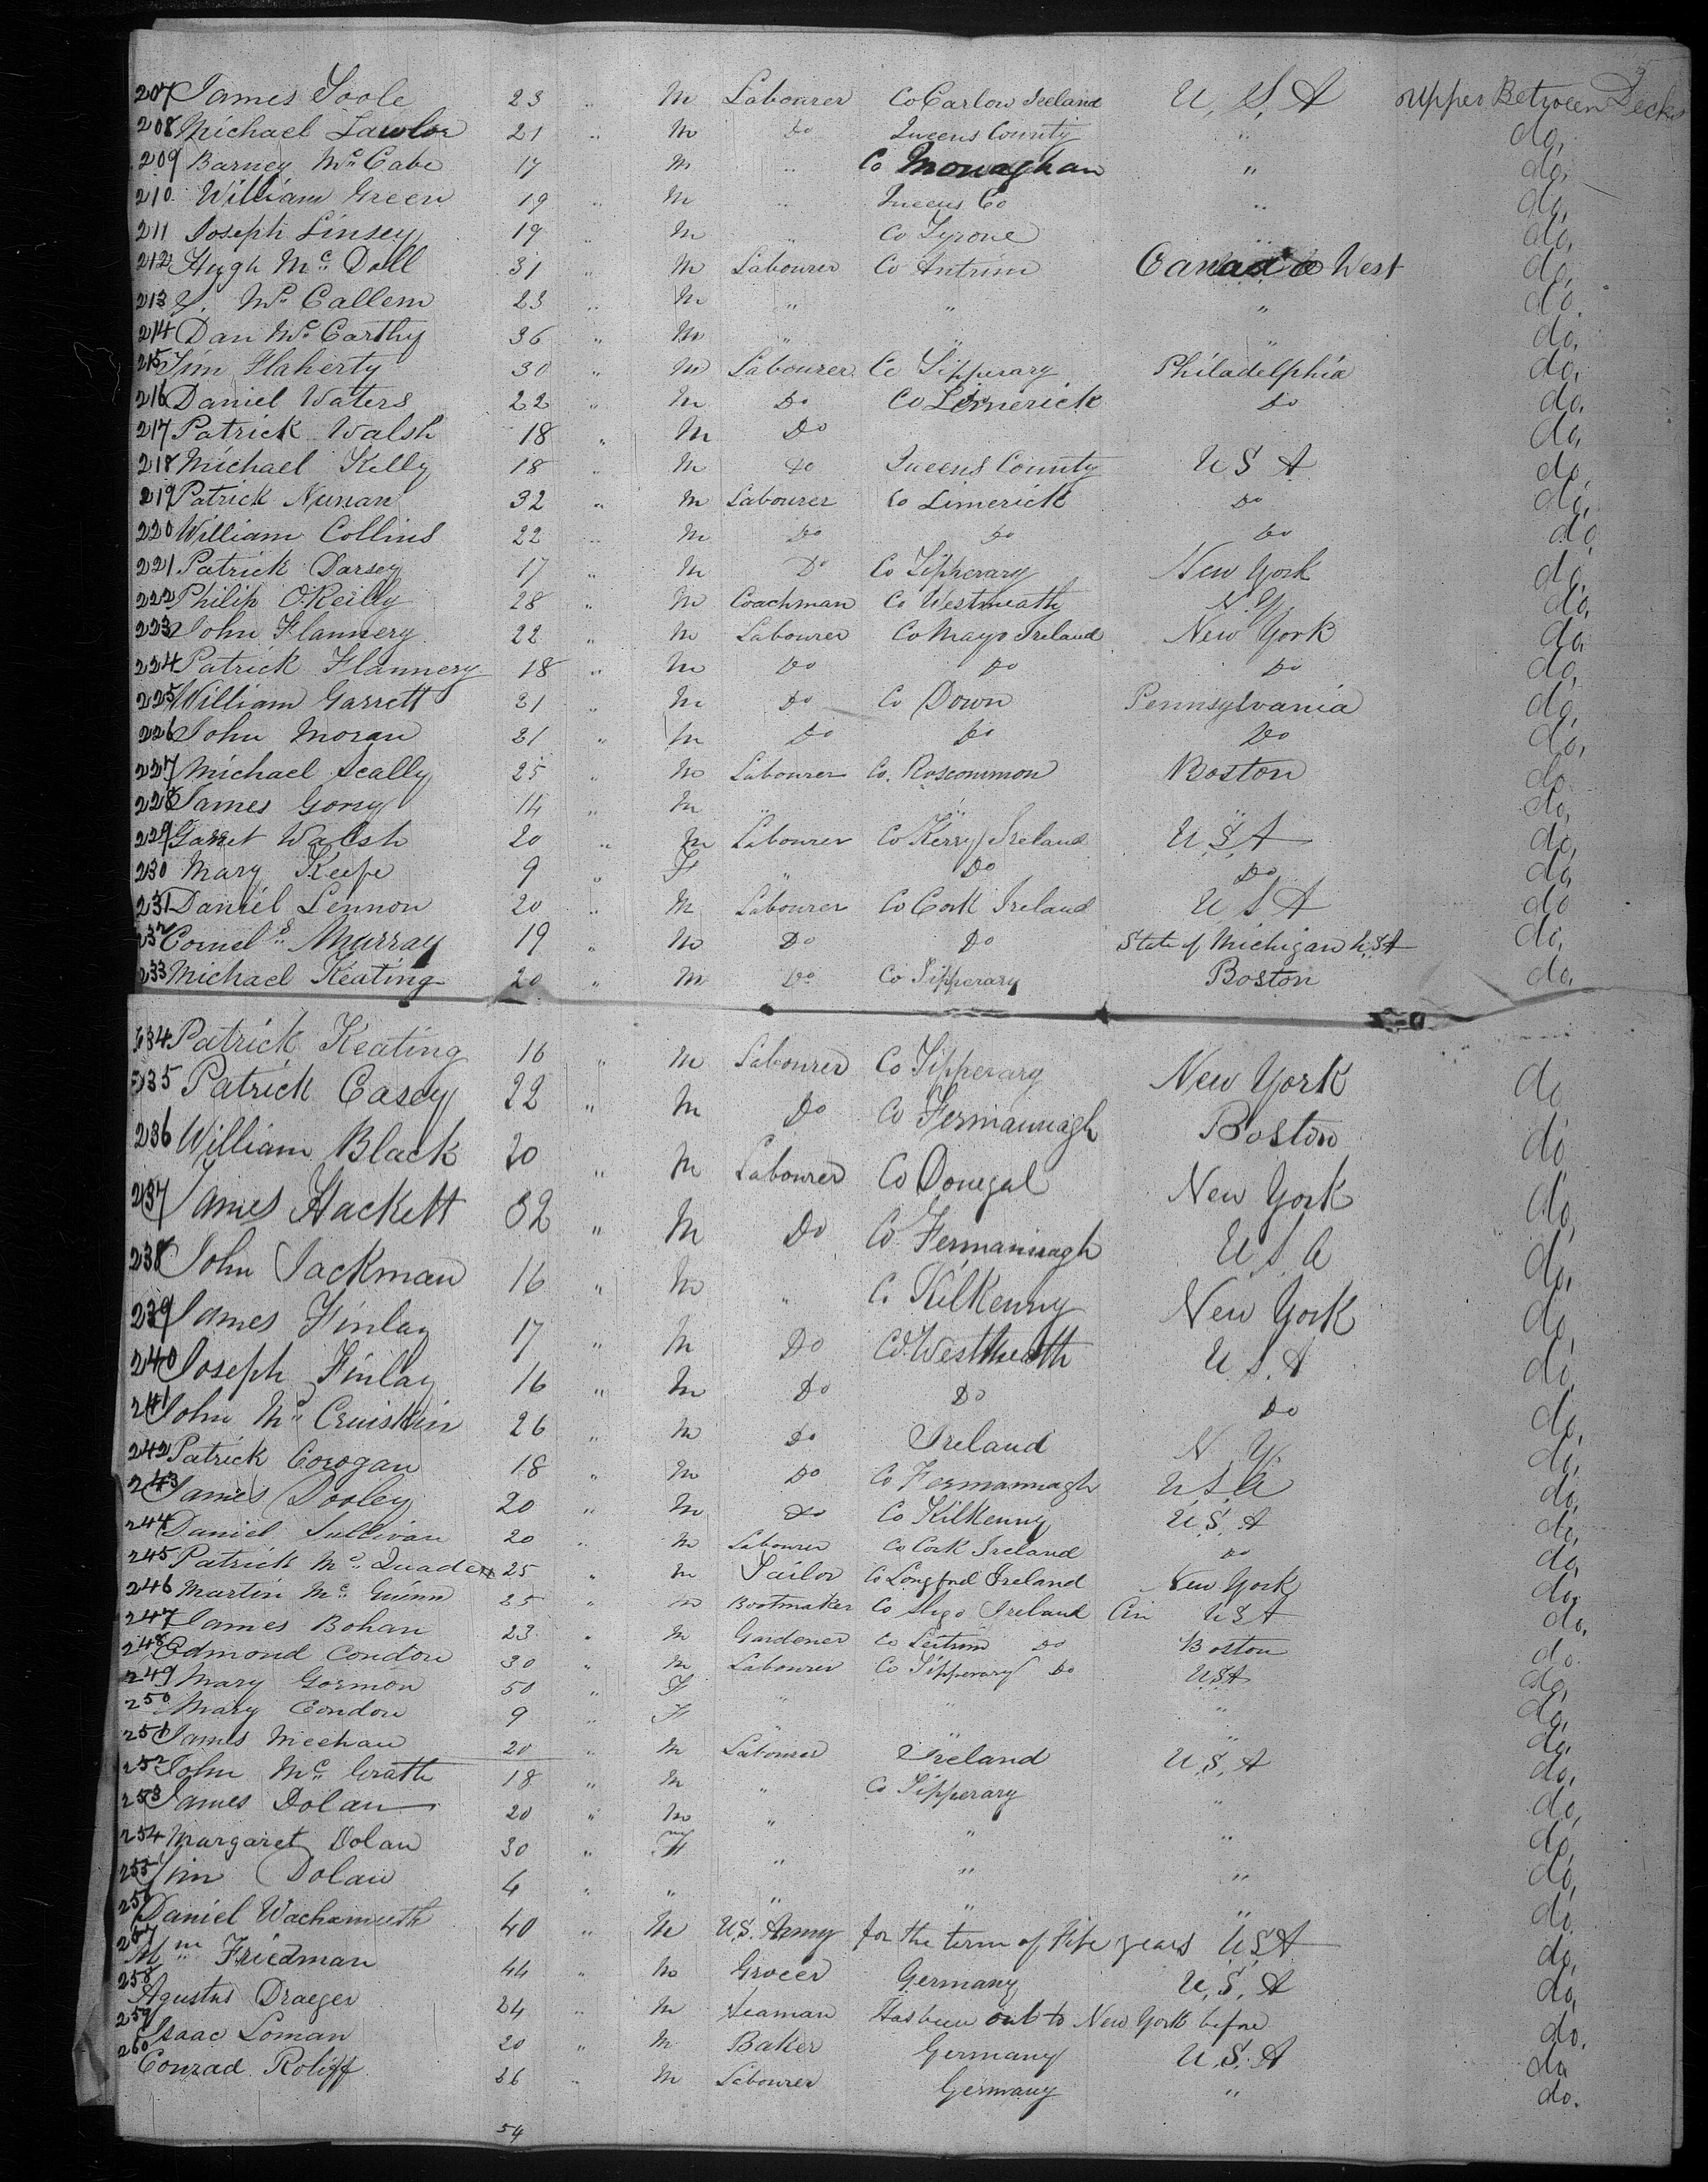 207 James Toole 23 " M Labourer Co Carlow Ireland U, S, A Upper Between Decks
208 Michael Lawlor 21 " M Do Queens County " do,
209 Barney Mc Cabe 17 M " Co Monaghan " do,
210 William Green 19 " M " Queens Co " do,
211 Joseph Linsey 19 " M " Co Tyrone " do,
212 Hugh Mc Doll 31 " M Labourer Co Antrim Canada West do,
213 Mc Callem 23 " M " " " do.
214 Dan Mc Carthy 36 " M " " " do,
215 Tim Flaherty 30 " M Labourer Co Tipperary Philadelphia do,
216 Daniel Waters 22 " M Do Co Limerick Do do,
217 Patrick Walsh 18 " M Do do,
218 Michael Kelly 18 " M do Queens County U S A do,
219 Patrick Nunan 32 " M Labourer Co Limerick Do do,
220 William Collins 22 " M Do Do Do do
221 Patrick Darsey 17 " M Do Co Tipperary New York do,
222 Philip O.Reilly 28 " M Coachman Co Westmeath N. Y. do,
223 John Flannery 22 " M Labourer Co Mayo Ireland New York do,
224 Patrick Flannery 18 " M Do Do Do do,
225 William Garrett 31 " M Do Co Down Pennsylvania do,
226 John Moran 21 " M Do Do Do do,
227 Michael Scally 25 " M Labourer Co. Roscommon Boston do
228 James Gorry 14 " M " " " do,
229 Garret Walsh 20 " M Labourer Co Kerry Ireland U S A do,
230 Mary Keefe 9 " F " Do Do do,
231 Daniel Lennon 20 " M Labourer Co Cork Ireland U S A do
232 Cornels Murray 19 " M Do Do State of Michigan U,S,A do,
233 Michael Keating 20 " M Do Co Tipperary Boston do,
234 Patrick Keating 16 " M Labourer Co Tipperary New York do
235 Patrick Casey 22 " M Do Co Fermannagh Boston do
236 William Black 20 " M Labourer Co Donegal New York do,
237 James Hackett 32 " M Do Co Fermannagh U S A do,
238 John Jackman 16 " M " Co Kilkenny New York do,
239 James Finlay 17 " M Do Co Westmeath U S. A do,
240 Joseph Finlay 16 " M Do Do Do do,
241 John Mc Cruiskin 26 " M Do Ireland N. Y. do,
242 Patrick Corogan 18 " M Do Co Fermannagh U S A do,
243 James Dooley 20 " M Do Co Kilkenny U. S. A do,
244 Daniel Sullivan 20 " M Labourer Co Cork Ireland Do do,
245 Patrick Mc Quaden 25 " M Tailor Co Longford Ireland New York do,
246 Martin Mc Guinn 25 " M Bootmaker Co Sligo Ireland Cin U S A do.
247 James Bohan 23 " M Gardener Co Leitrim Do Boston do.
248 Edmond Condon 30 " M Labourer Co Tipperary Do U.S.A do,
249 Mary Gormon 50 " F " " " do,
250 Mary Condon 9 " F " " " do,
251 James Meehan 20 " M Labourer Ireland U, S, A do,
252 John Mc Grath 18 " M " Co Tipperary " do,
253 James Dolan 20 " M " " " do,
254 Margaret Dolan 30 " F " " " do,
255 Jim Dolan 4 " " " " " do.
256 Daniel Wachamuth 40 " M U.S. Army for the term of five years U S A do,
257 Wm Friedman 44 " M Grocer Germany U, S, A do,
258 Agustus Draeger 24 " M Seaman Has been out to New York before do.
259 Isaac Loman 20 " M Baker Germany U, S, A do
260 Conrad Roliff 26 " M Labourer Germany " do.
54